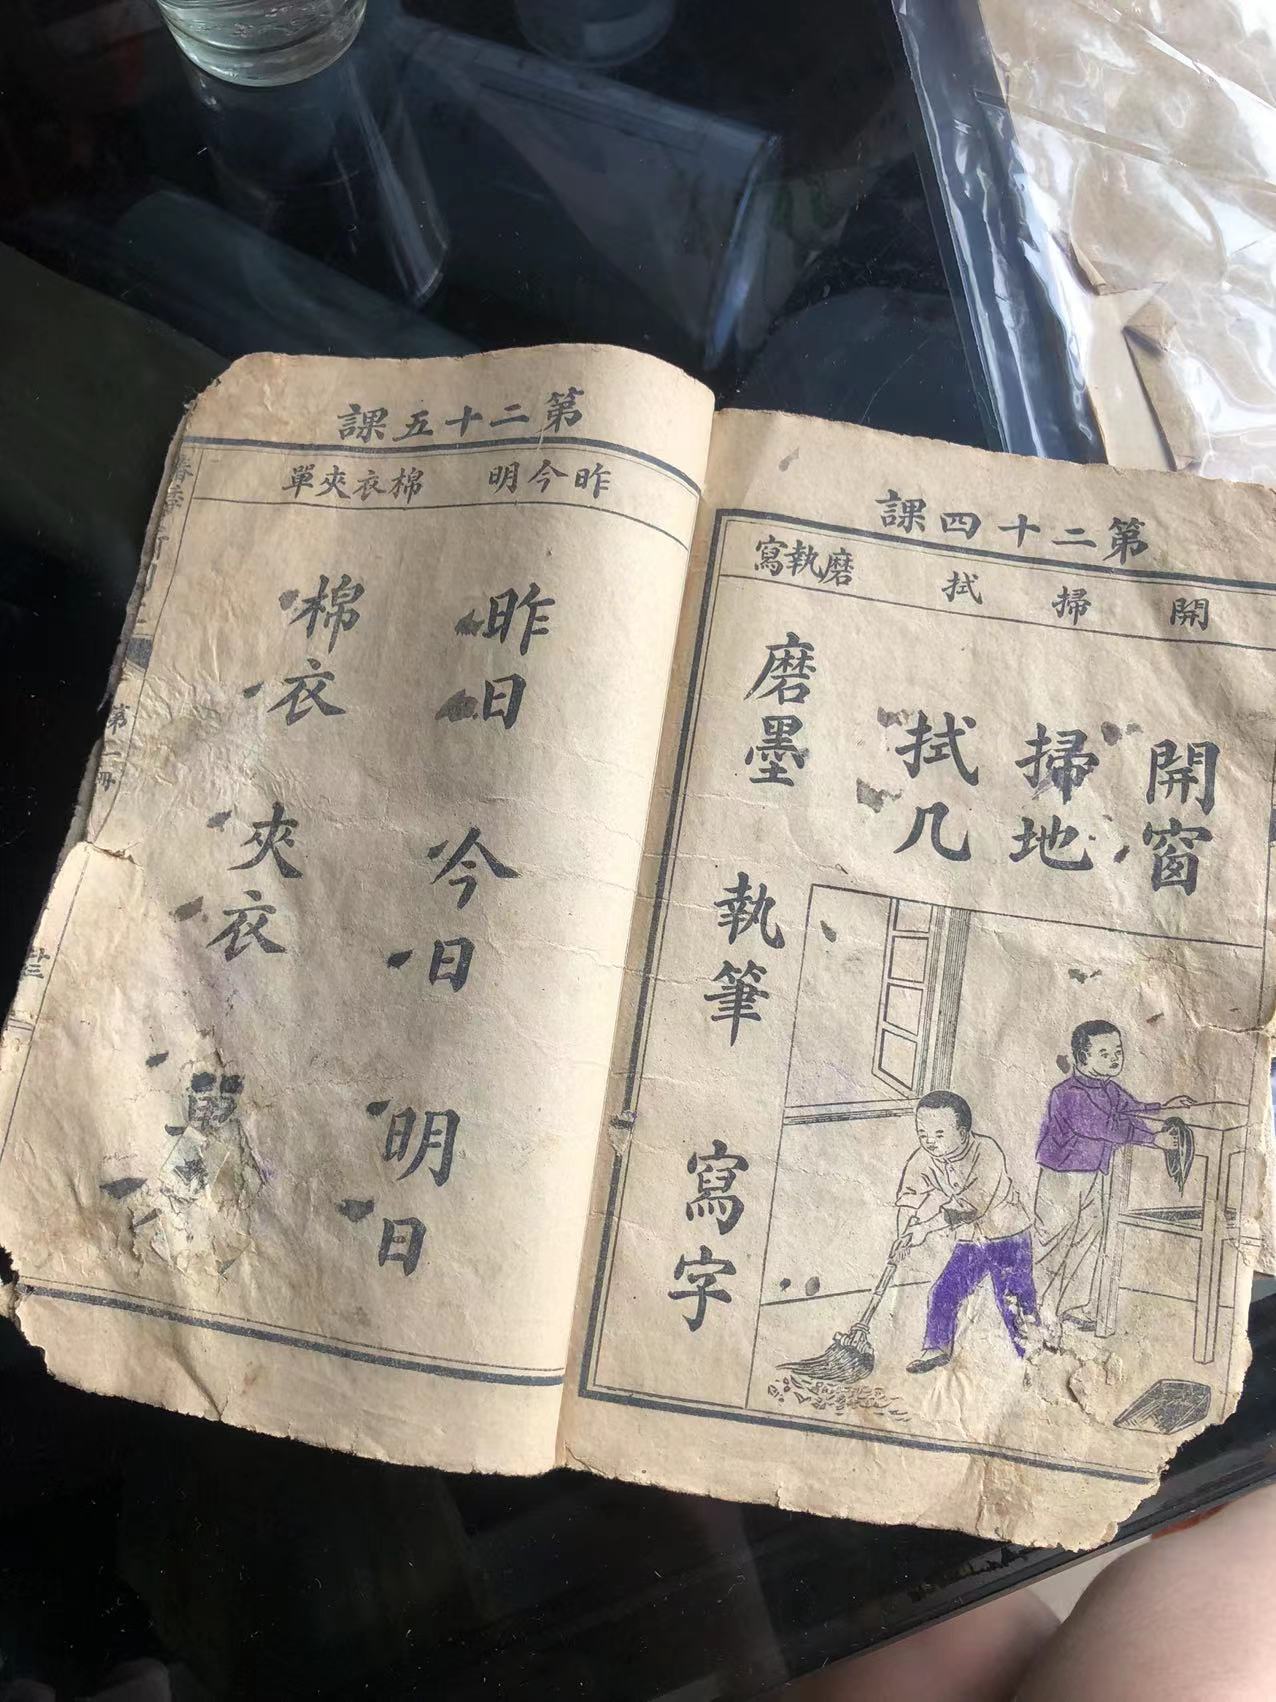 第二十四課
開 掃 拭 磨執寫
開窗
掃地
拭几
磨墨 執筆 寫字
第二十五課
昨今明 棉衣夾單
昨日 今日 明日
棉衣 夾衣 單
第二冊
廿三